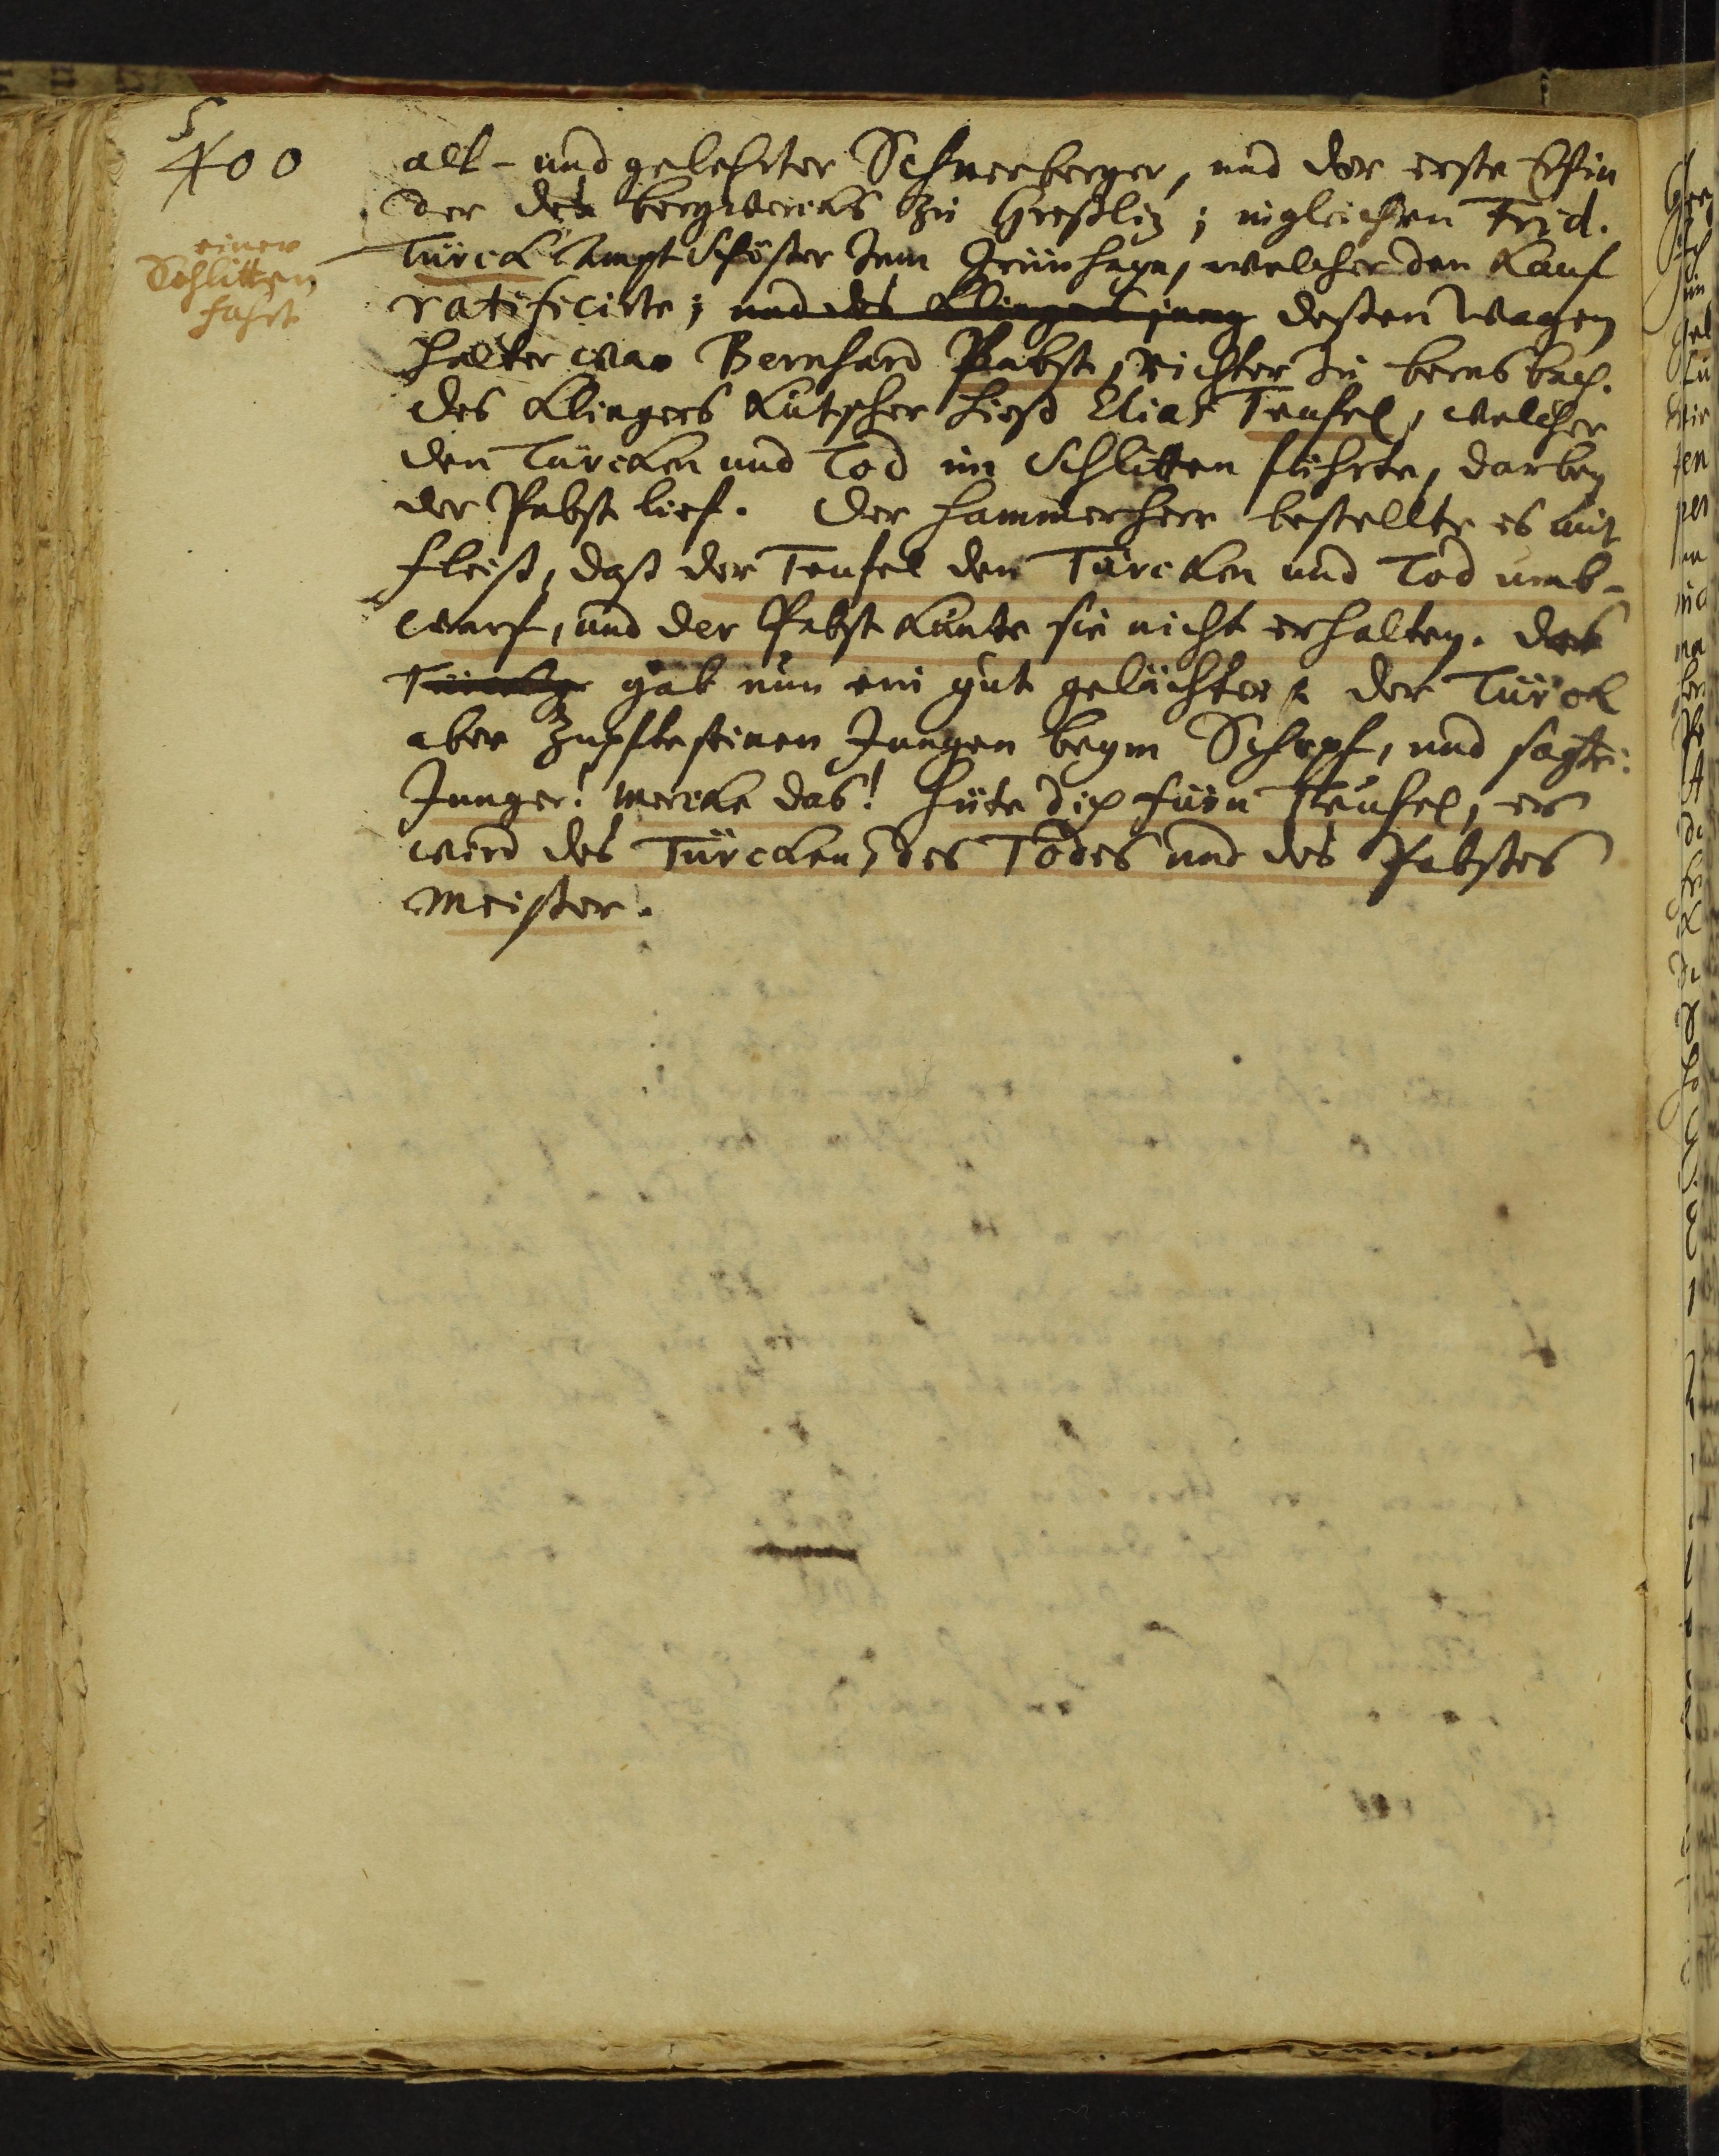 5
400
einer
Schlitten
fahrt
alt- und gelehrter Schneeberger, und der erste Erfin
der des bergwercks zu Greßliz; ingleichen Frid.
Türck Ampt Schößer zum Grünhayn, welcher den Kauf
ratificirte; und des Klingers jung deßen Wagen
halter war Bernhard Pabst, Richter zu bernsbach.
des Klingers Kutscher hieß Elias Teufel, welcher
den Türcken und Tod im Schlitten führte, darbey
der Pabst lief. Der Hammerherr bestellte es mit
fleiß, daß der Teufel den Türcken und Tod umb-
warf, und der Pabst kunte sie nicht erhalten. das
Türcken gab nun ein gut gelächter, der Türck
aber zupfte seinen Jungen beym Schopf, und sagte:
Junger! mercke das! hüte dich fürn Teufel, er
wird des Türcken, des Todes und des Pabstes
meister.